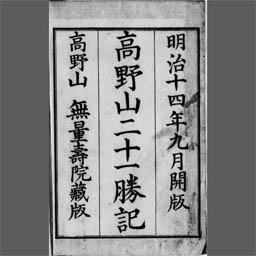 明治十四年九月開版
高野山二十一勝記
高野山 無量壽院藏版